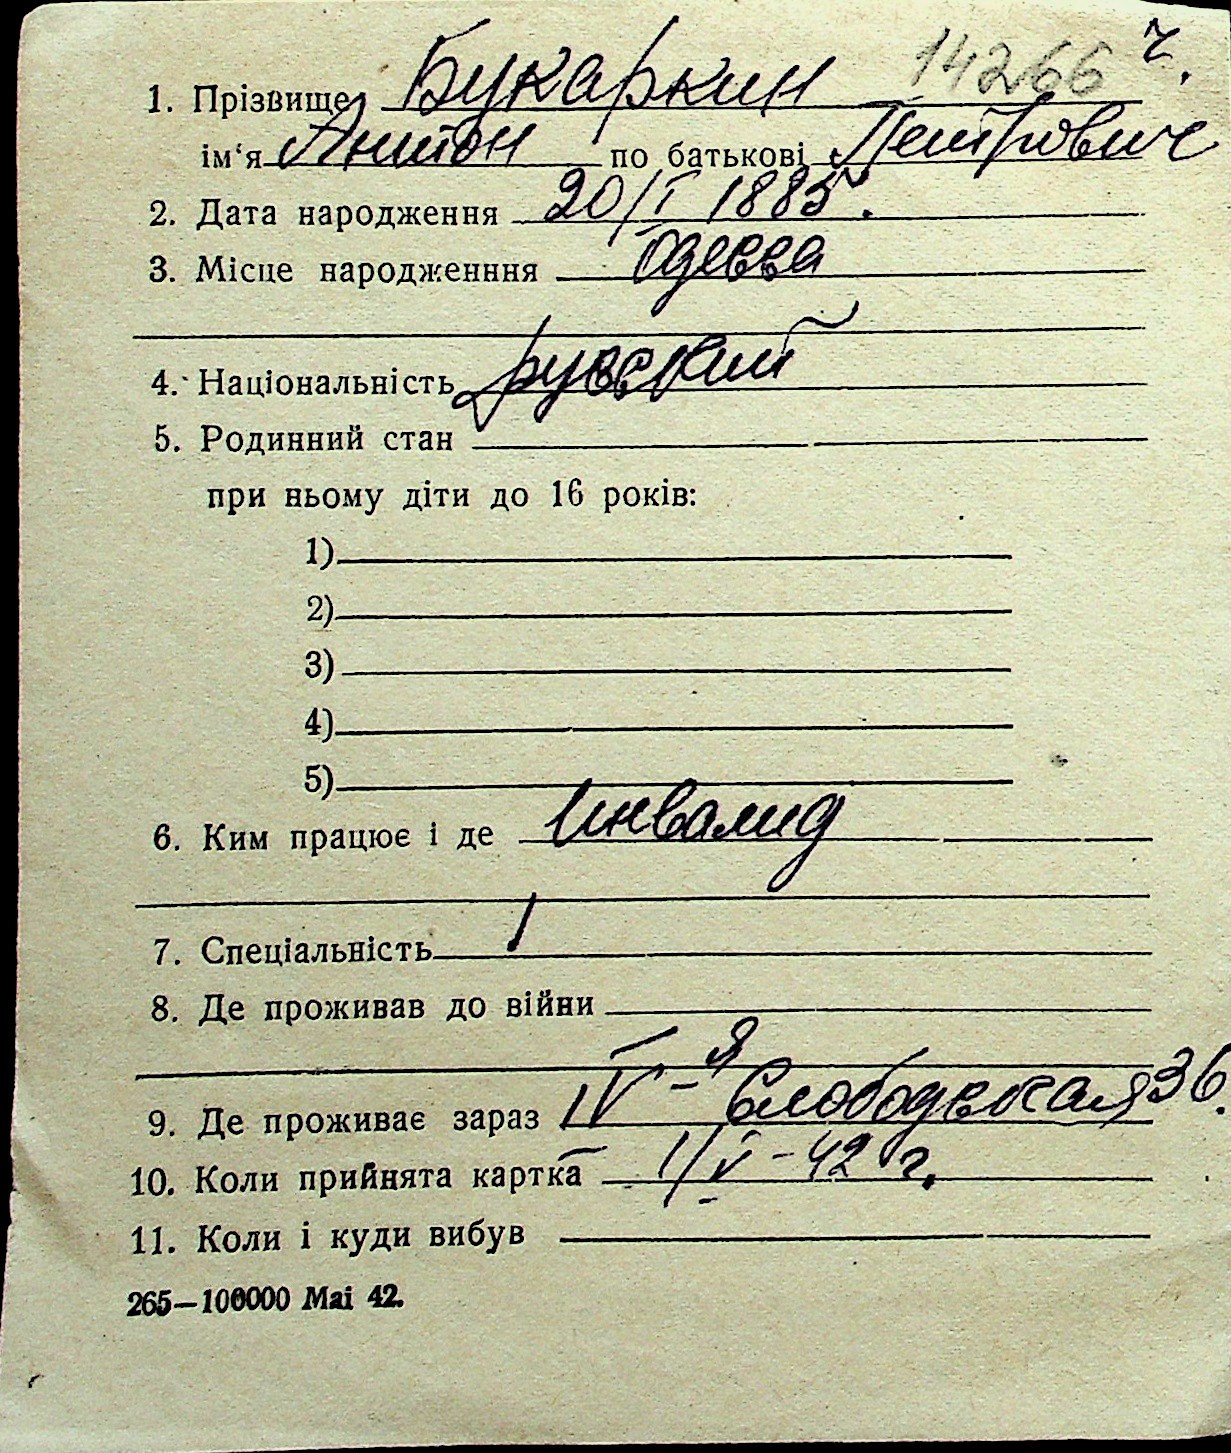 14266 ч.
1. Прізвище Букаркин
ім‘я Антон по батькові Петрович
2. Дата народження 20/I 1885.
3. Місце народженння Одесса
4. Національність русский
5. Родинний стан
при ньому діти до 16 років:
1)
2)
3)
4)
5)
6. Ким працює і де Инвалид
7. Спеціальність
8. Де проживав до війни
9. Де проживає зараз IV-я Слободская 36.
10. Коли прийнята картка 1/V-42 г.
11. Коли і куди вибув
265—100000 Mai 42.